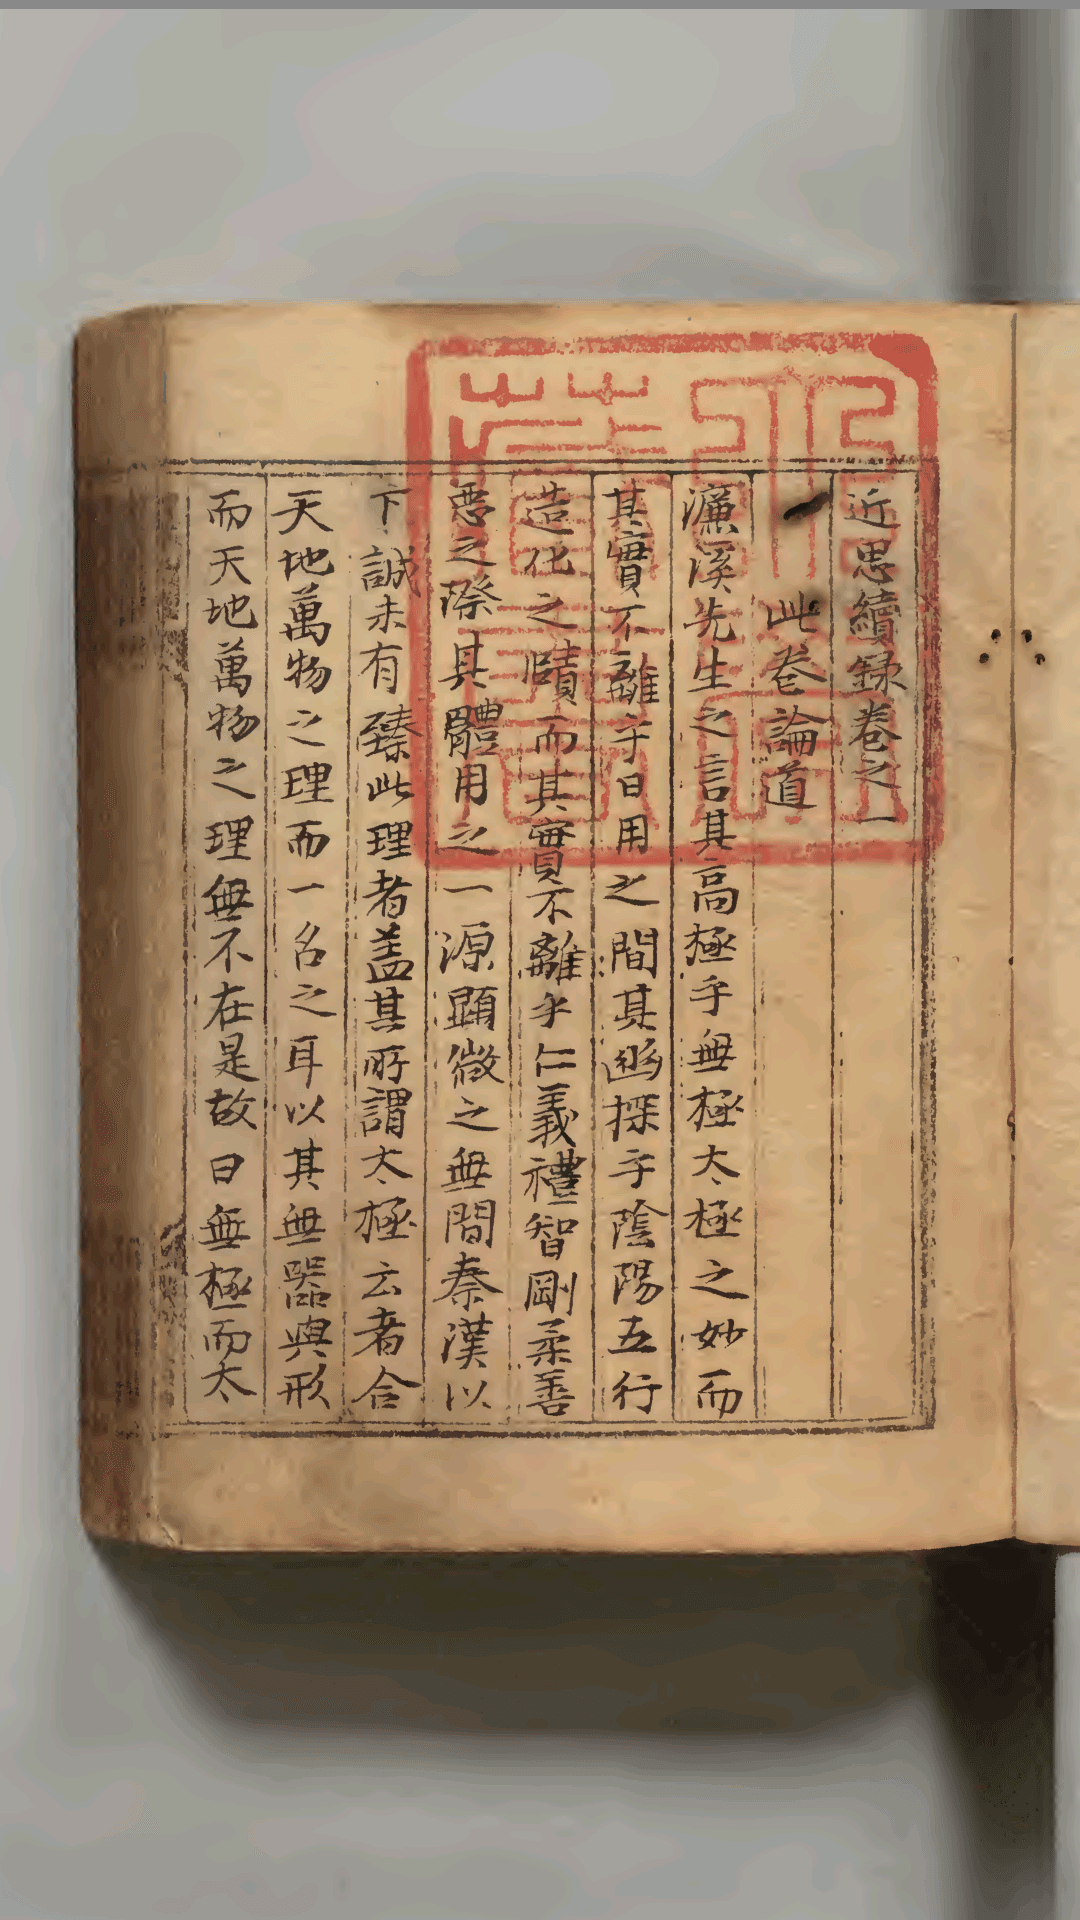 近思續録卷之一
此卷論道
濂溪先生之言其高極乎無極太極之妙而
其實不離乎日用之間其幽探乎陰陽五行
造化之賾而其實不離乎仁義禮智剛柔善
惡之際其體用之一源顯微之無間秦漢以
下誠未有臻此理者盖其所謂太極云者合
天地萬物之理而一名之耳以其無器與形
而天地萬物之理無不在是故曰無極而太